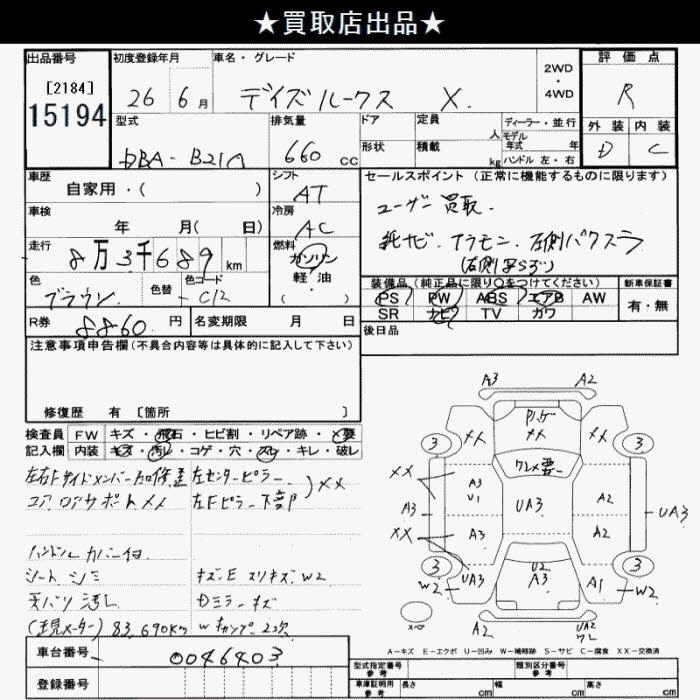 ★買取店出品★
出品番号 初度登録年月 車名・グレード 2WD・4WD 評価点
[2184]
15194
26 6月 デイズルークス X. R
型式 排気量 ドア 定員 人 ディーラー・並行 外装 内装
形状 積載 kg モデル年式 年 ハンドル 左・右
DBA-B21A 660 CC D C
車歴 シフト セールスポイント(正常に機能するものに限ります)
自家用・( ) AT
ユーザー買取.
車検 冷房
年 月( 日) AC
純ナビ. アラモニ. 左側パワスラ
走行 燃料
8万3千689km ガソリン
軽・油
( )
色 色替 色コード 装備品(純正品に限り○をつけてください) 新車保証書
ブラウン - C12 PS PW ABS エアB AW 有・無
SR ナビ TV カワ
R券 8860円 名変期限 月 日 後日品
注意事項申告欄(不具合内容等は具体的に記入して下さい)
修復歴 有 [箇所 ]
検査員 FW キズ・飛石・ヒビ割・リペア跡・要
記入欄 内装 キズ・汚レ・コゲ・穴・スレ・キレ・破レ
左センターピラー
コアロアサポートXX 左Fピラー下部 XX
ハンドルカバー付
シートシミ キズ.E スリキズ.W2
天バリ汚レ Dミラーキズ
(現メーター) 83,690km
車台番号 0046403
登録番号
A3 A2
XX XX
ワレメ要
3 3
XX A3 U1
A3 UA3 A2 UA3
XX A3 A2
3 U2 3
W2 UA3 A3 A1 W2
スペア A2 UA2 ワレ
A-キズ E-エクボ U-凹み W-補修跡 S-サビ C-腐食 XX-交換済
型式指定番号 参考 類別区分番号 参考
車庫証明用 参考 長さ cm 幅 cm 高さ cm